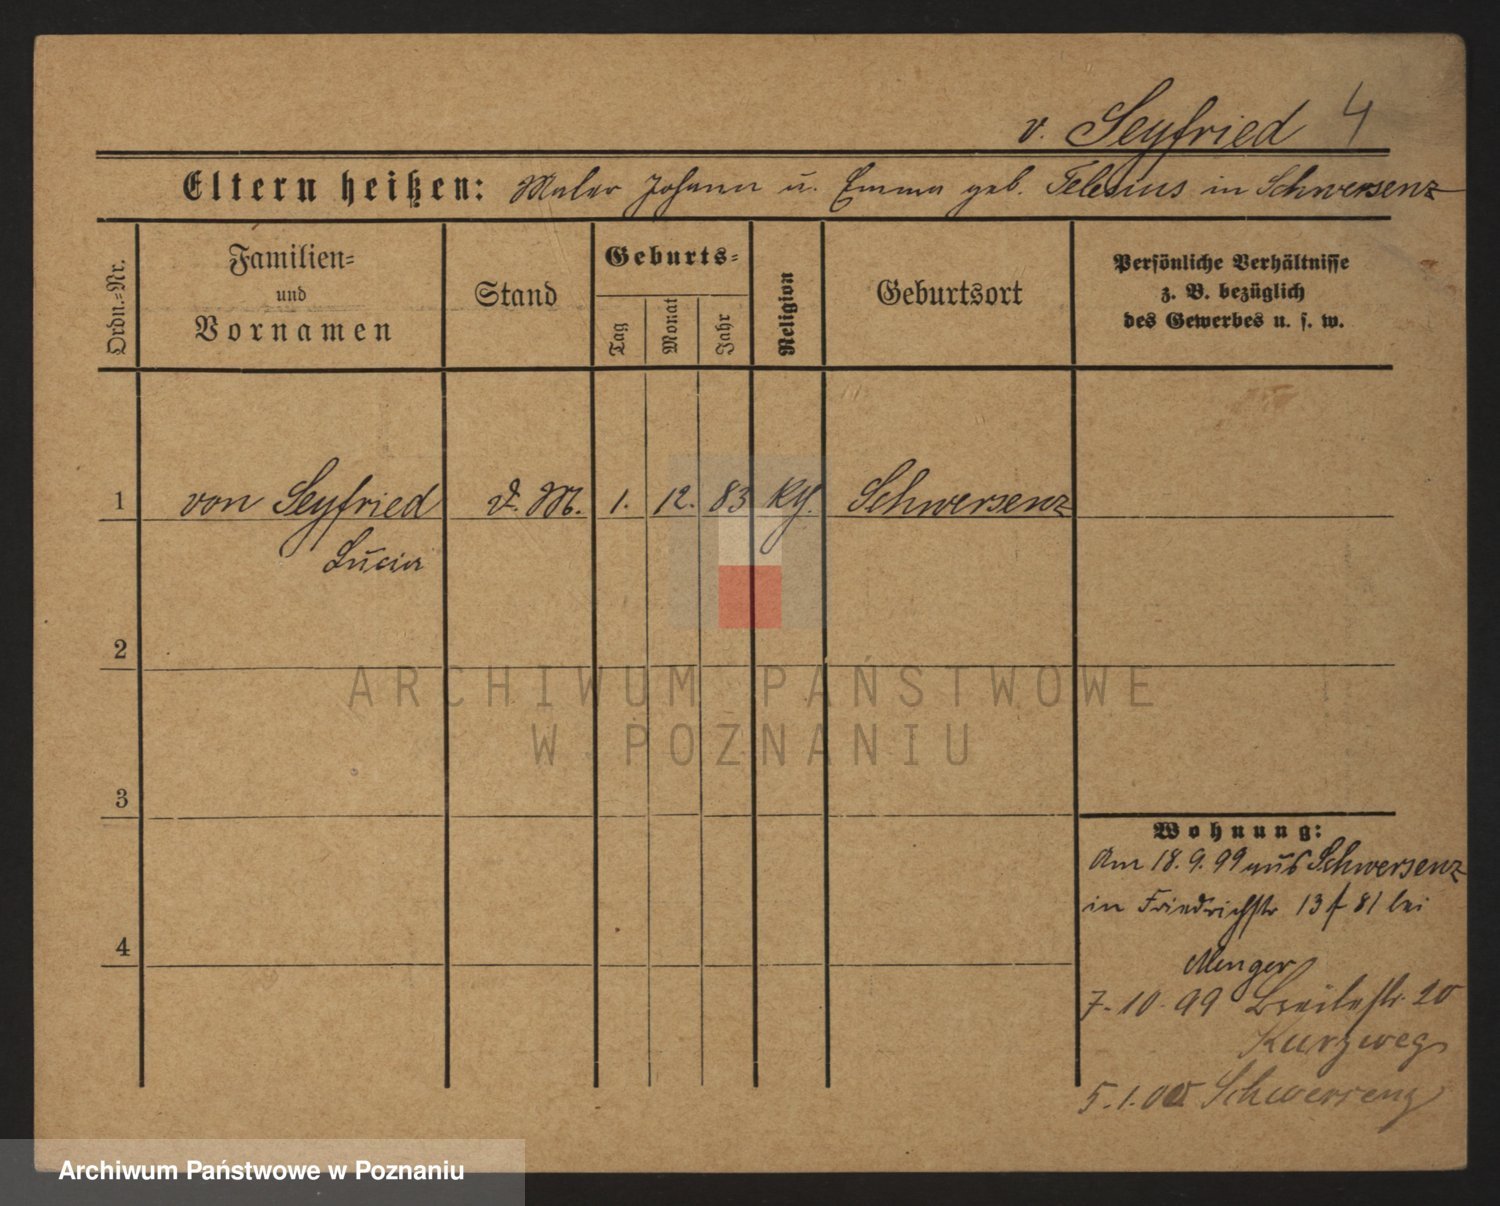 v. Seyfried 4
Eltern heißen: Maler Johann u. Emma geb. Telesius in Schwersenz
Ordn.=Nr.
Familien=
und
Vornamen
Stand
Geburts=
Tag
Monat
Jahr
Religion
Geburtsort
Persönliche Verhältnisse
z. B. bezüglich
des Gewerbes u. s. w.
1 von Seyfried D. M. 1. 12. 83 Kth. Schwersenz
Lucia
2
ARCHIWUM PAŃSTWOWE
W POZNANIU
3
Wohnung:
Am 18.9.99 aus Schwersenz
in Friedrichstr 13 81 bei
Menger
4
7.10.99 Breitestr. 20
Kurzweg
5.1.00 Schwersenz
Archiwum Państwowe w Poznaniu